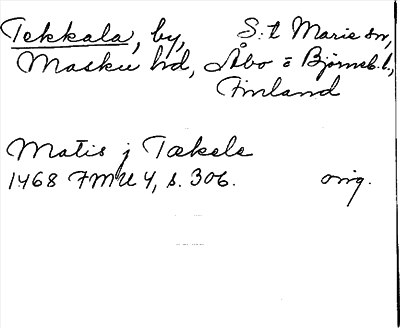 Tekkala, by, S:t Marie sn,
Masku hd, Åbo o Björneb. l.,
Finland
Matis j Tækele
1468 FMU 4, s. 306. orig.